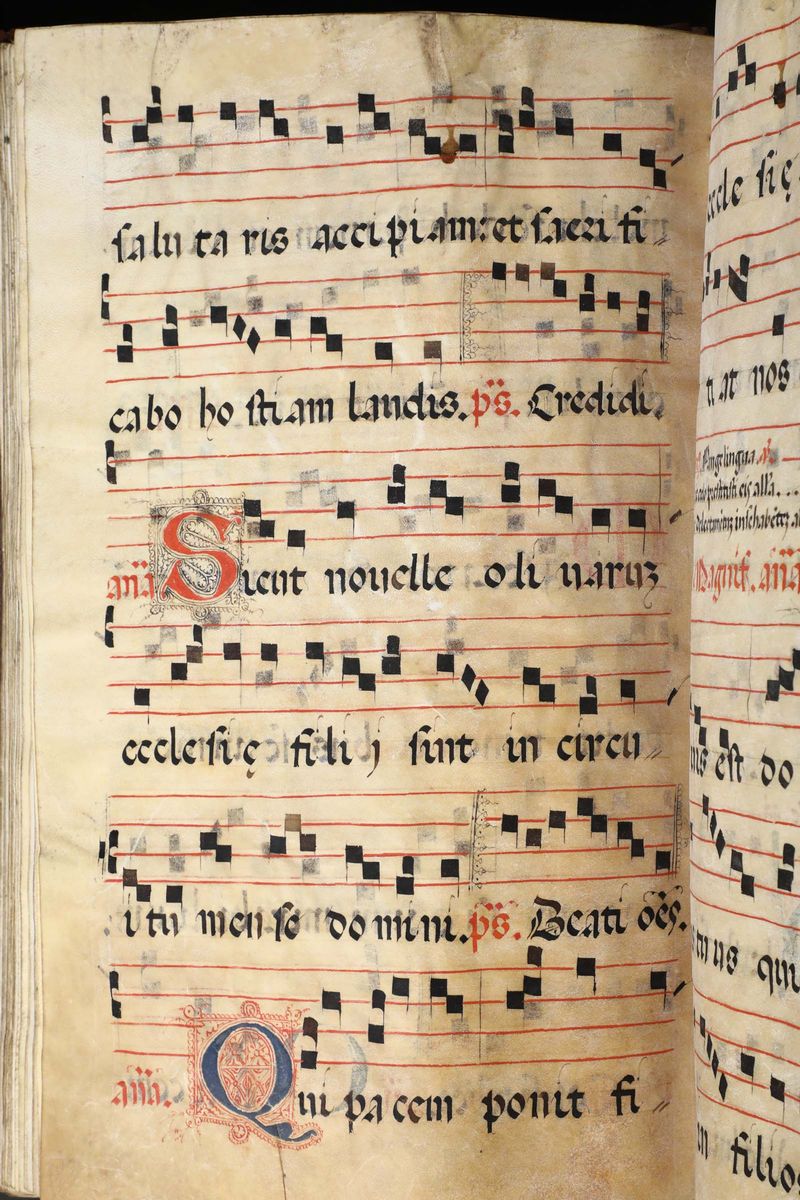 salu ta ris accipiam: et sacri fi
cabo ho stiam laudis. ps. Credidi.
aña Sicut nouelle oli uarum
ecclesię filij sint in circu
itu mense domini. ps. Beati oēs.
aña. Qui pacem ponit fi
ecle się
ti at nos
Magnif. aña
est do
us qui
filios